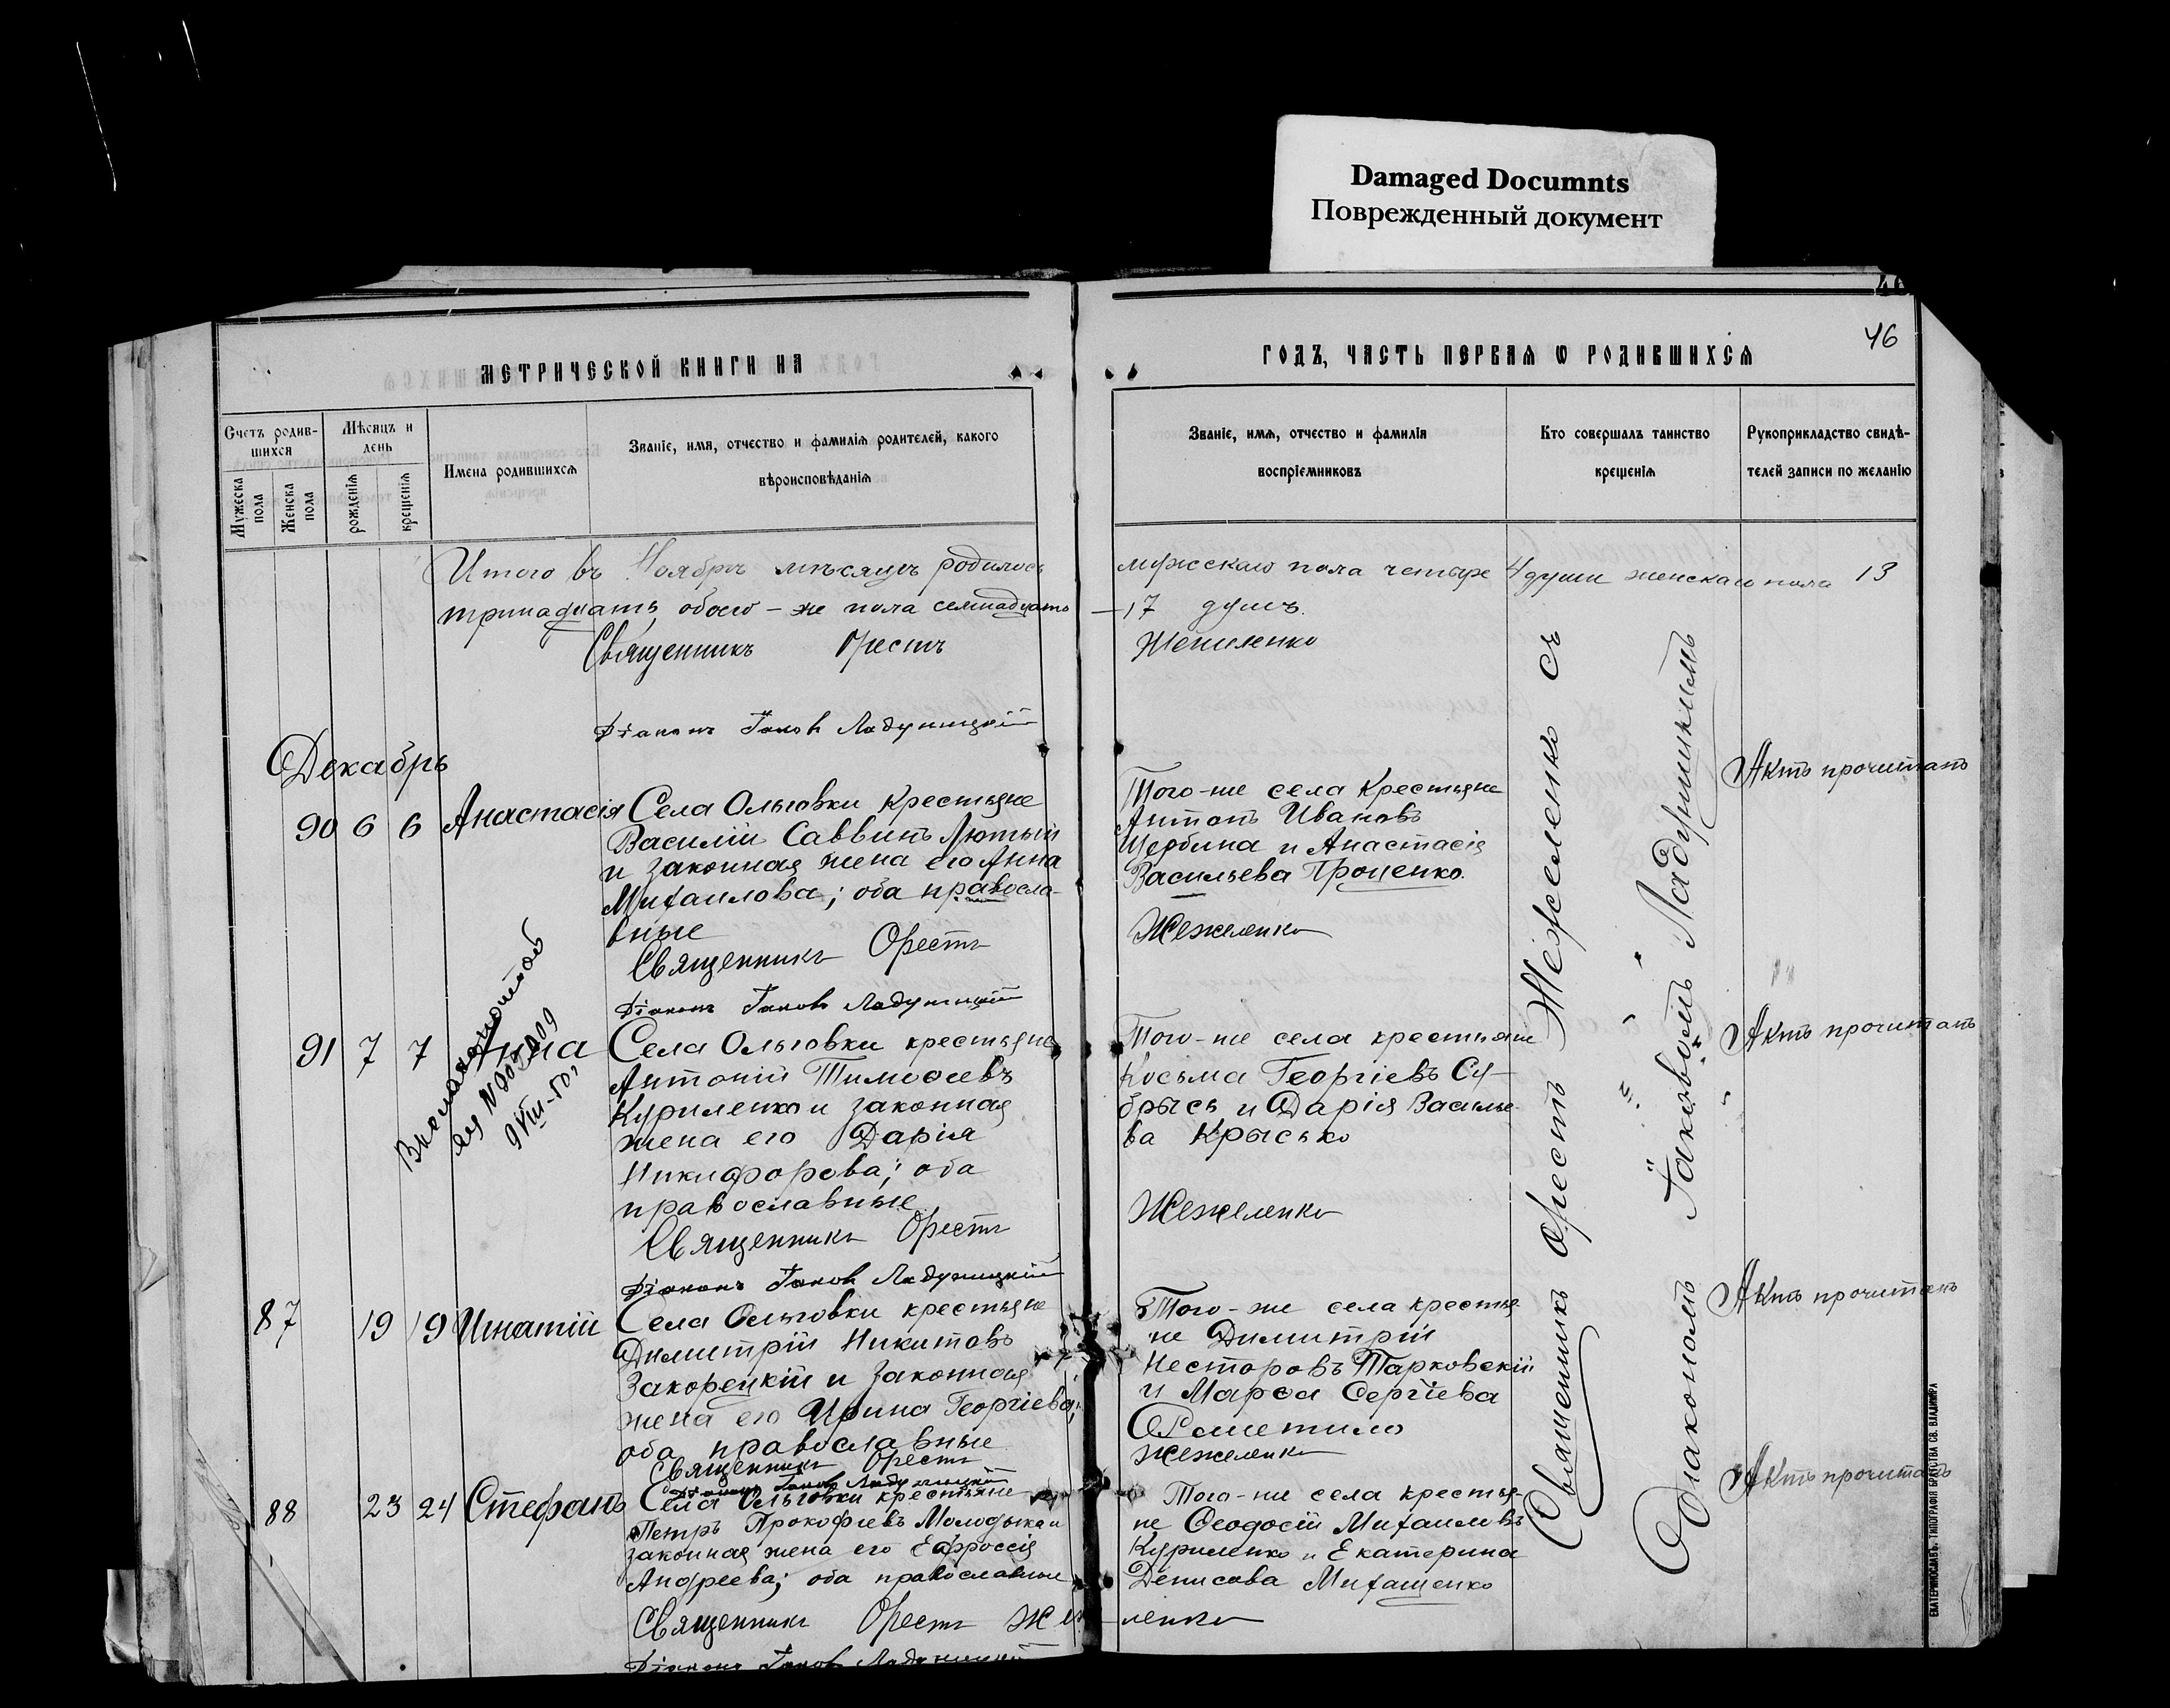 Damaged Documnts
Поврежденный документ
МЕТРИЧЕСКОЙ КНИГИ НА
ГОДЪ, ЧАСТЬ ПЕРВАЯ Ѡ РОДИВШИХСЯ
46
Счетъ родив-
шихся
Мужеска пола
Женска пола
Мѣсяцъ и
день
рожденія
крещенія
Имена родившихся
Званіе, имя, отчество и фамилія родителей, какого
вѣроисповѣданія
Званіе, имя, отчество и фамилія
воспріемниковъ
Кто совершалъ таинство
крещенія
Рукоприкладство свидѣ-
телей записи по желанію
Итого въ Ноябрѣ мѣсяцѣ родилось
мужскаго пола четыре 4 души женскаго пола 13
тринадцать, обоего-же пола семнадцать
—17 душъ.
Священникъ Орестъ
Жежеленко
Діаконъ Іаковъ Ладушицкій
Декабрь
90 6 6 Анастасія
Села Ольговки крестьяне
Василій Саввинъ Лютый
и законная жена его Анна
Михаилова; оба правосла-
вные
Священникъ Орестъ
Діаконъ Іаковъ Ладушицкій
Того-же села крестьяне
Антонъ Ивановъ
Щербина и Анастасія
Васильева Проценко.
Жежеленко
Актъ прочитанъ
91 7 7 Анна
9 VIII-50
Села Ольговки крестьяне
Антоній Тимоѳеевъ
Куриленко и законная
жена его Дарія
Никифорова; оба
православные
Священникъ Орестъ
Діаконъ Іаковъ Ладушицкій
Того-же села крестьяне
Косьма Георгіевъ Су-
брысь и Дарія Василье-
ва Крысько
Жежеленко
Актъ прочитанъ
87 19 19 Игнатій
Села Ольговки крестьяне
Димитрій Никитовъ
Закорецкій и законная
жена его Ирина Георгіева;
оба православные
Священникъ Орестъ
Діаконъ Іаковъ Ладушицкій
Того-же села крестья-
не Димитрій
Несторовъ Тарковскій
и Марѳа Сергіева
Жежеленко
Актъ прочитанъ
88 23 24 Стефанъ
Села Ольговки крестьяне
Петръ Прокофіевъ Молодыка и
законная жена его Ефросія
Андреева; оба православные
Священникъ Орестъ Жеже-
ленко
Діаконъ Іаковъ Ладушицкій
Того-же села крестья-
не Ѳеодосій Михаиловъ
Куриленко и Екатерина
Денисова Михащенко
Актъ прочитанъ
Священникъ Орестъ Жежеленко съ
Діакономъ Іаковомъ Ладушицкимъ
ЕКАТЕРИНОСЛАВЪ. ТИПОГРАФІЯ БРАТСТВА СВ. ВЛАДИМІРА